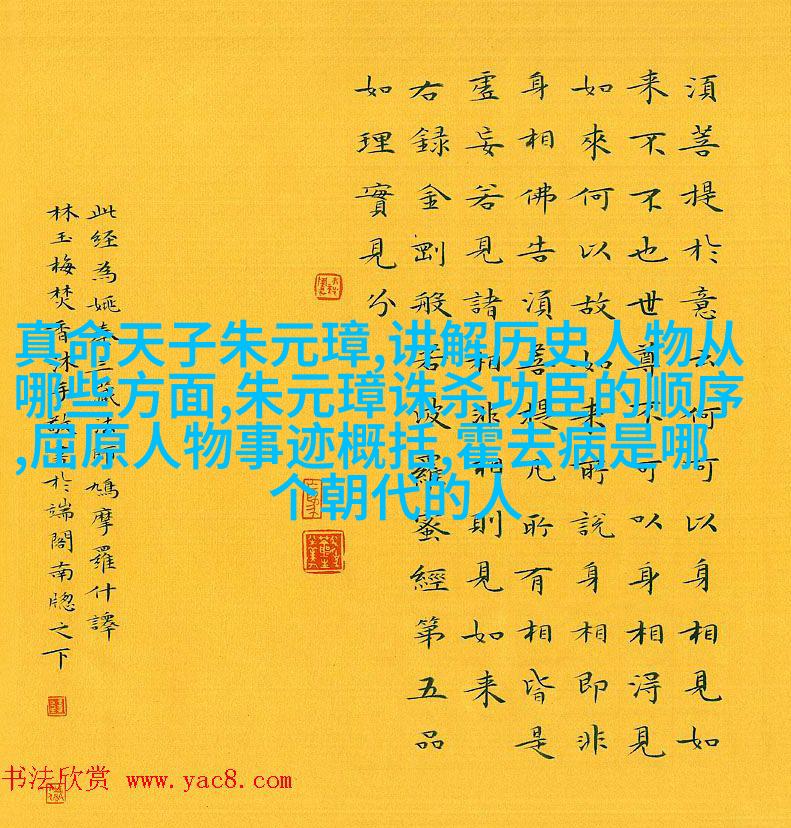 須菩提於意云何可以身相見如
来不不也世尊不可以身相得見
如來何以故如来所說身相即非
身相佛告須菩提凡所有相皆是
虛妄若見諸相非相則見如来
右録金剛般若波羅蜜經第五品
如理實見分
此経為姚秦三藏法師鳩摩羅什譯
林玉梅焚香沐手敬書於端閣南牕之下
真命天子朱元璋,讲解历史人物从
哪些方面,朱元璋诛杀功臣的顺序
,屈原人物事迹概括,霍去病是哪
个朝代的人
书法欣赏 www.yac8.com